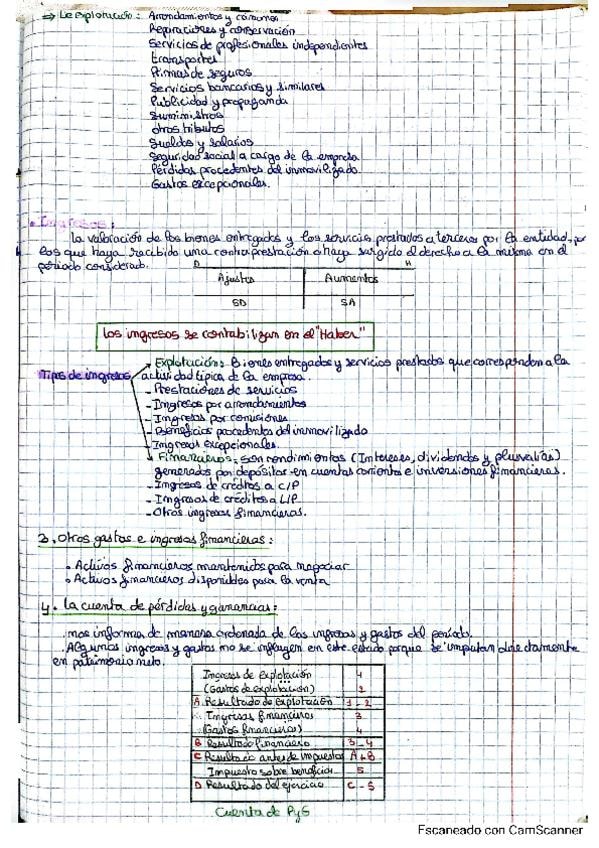 ⇒ De explotación: Arrendamientos y cánones
Reparaciones y conservación
Servicios de profesionales independientes
transportes
Primas de seguros
Servicios bancarios y similares
Publicidad y propaganda
Suministros
otros tributos
Sueldos y salarios
Seguridad social a cargo de la empresa
Pérdidas procedentes del inmovilizado
Gastos excepcionales.
• Ingresos:
La valoración de los bienes entregados y los servicios prestados a terceros por la entidad, por
los que haya recibido una contraprestación o haya surgido el derecho a la misma en el
período considerado.
D H
Ajustes Aumentos
SD SA
Los ingresos se contabilizan en el "Haber"
Explotación: Bienes entregados y servicios prestados que corresponden a la
Tipos de ingresos actividad típica de la empresa.
- Prestaciones de servicios
- Ingresos por arrendamientos
- Ingresos por comisiones
- Beneficios procedentes del inmovilizado
- Ingresos excepcionales.
Financieros: son rendimientos (Intereses, dividendos y plusvalías)
generados por depósitos en cuentas corrientes e inversiones financieras.
- Ingresos de créditos a C/P
- Ingresos de créditos a L/P
- Otros ingresos financieros.
3. Otros gastos e ingresos financieros:
• Activos financieros mantenidos para negociar
• Activos financieros disponibles para la venta
4. La cuenta de pérdidas y ganancias:
nos informa de manera ordenada de los ingresos y gastos del período.
Algunos ingresos y gastos no se incluyen en este estado porque se imputan directamente
en patrimonio neto.
Ingresos de explotación 1
(Gastos de explotación) 2
A. Resultado de explotación 1-2
Ingresos financieros 3
(Gastos financieros) 4
B Resultado financiero 3-4
C Resultado antes de impuestos A+B
Impuesto sobre beneficios 5
D Resultado del ejercicio C-5
Cuenta de PyG
Escaneado con CamScanner